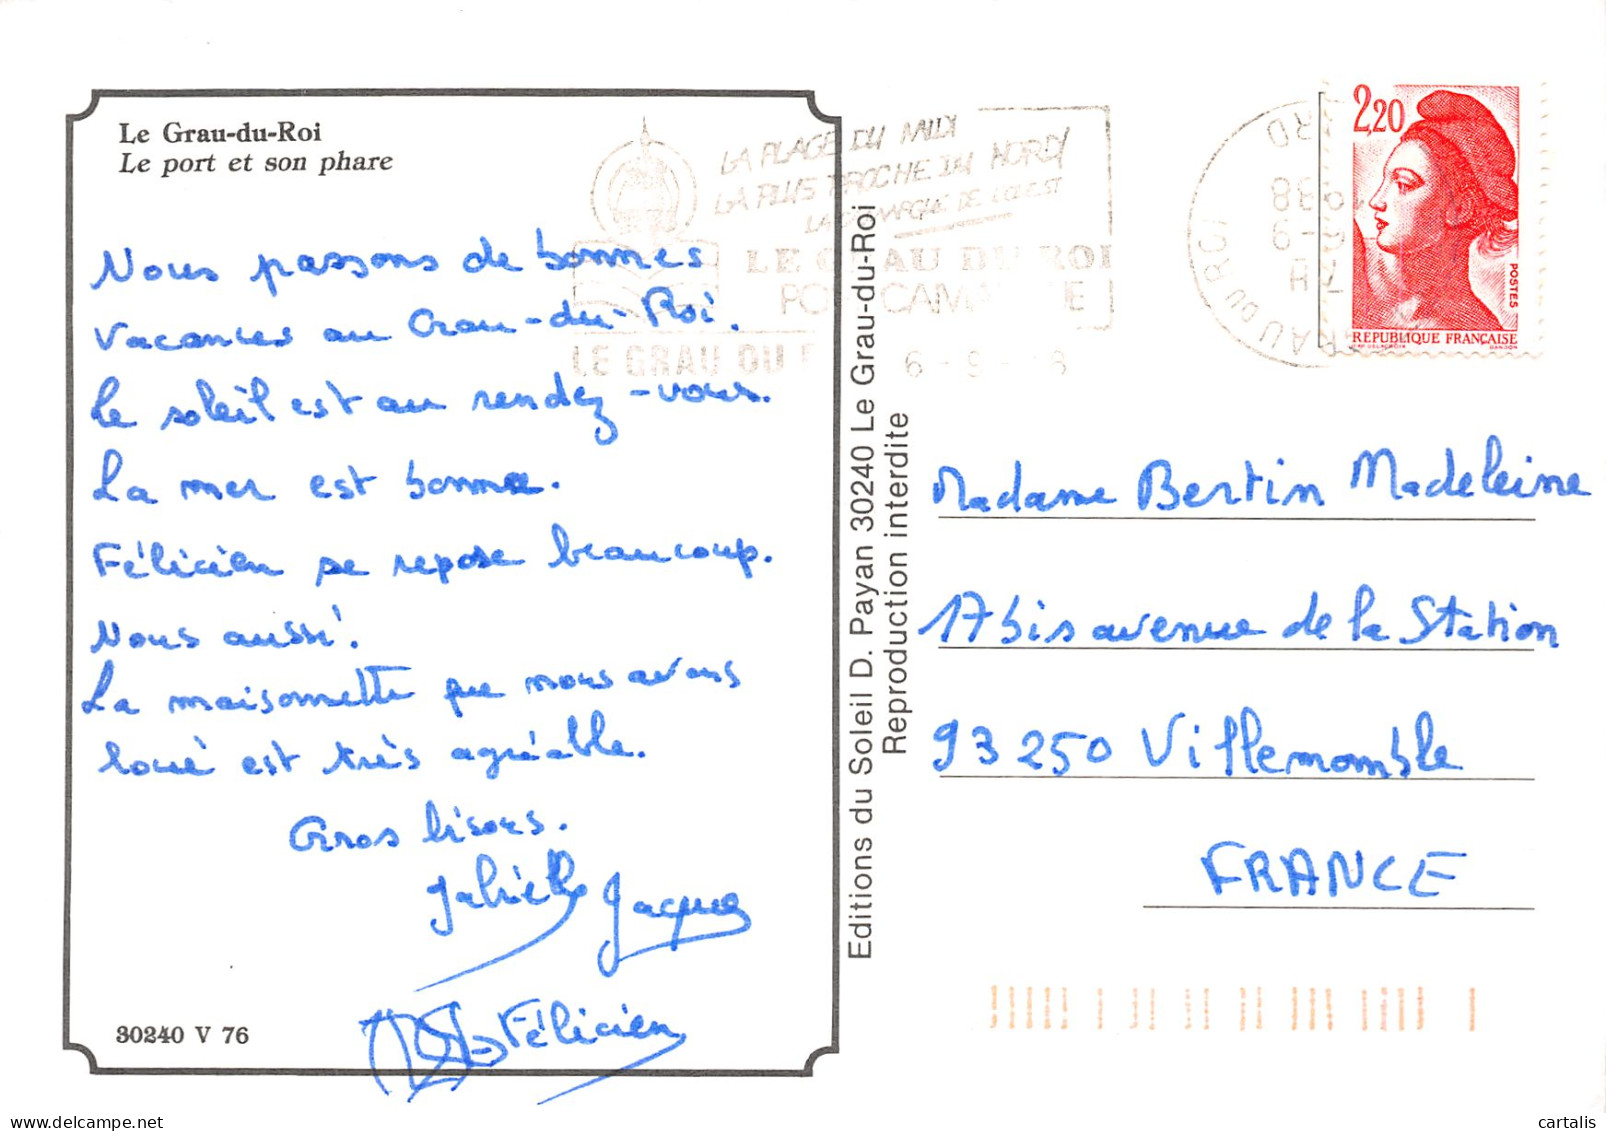 Le Grau-du-Roi
Le port et son phare
Nous passons de bonnes
vacances au Grau-du-Roi.
Le soleil est au rendez-vous.
La mer est bonne.
Félicien se repose beaucoup.
Nous aussi.
La maisonnette que nous avons
loué est très agréable.
Gros bisous.
Gabrielle Jacques
Félicien
30240 V 76
Editions du Soleil D. Payan 30240 Le Grau-du-Roi
Reproduction interdite
LA PLAGE DU MIDI
LA PLUS PROCHE DU NORD
LA CAMARGUE DE L'OUEST
LE GRAU DU ROI
PORT CAMARGUE
LE GRAU DU 6-9- 8
GRAU DU ROI
GARD
2,20
POSTES
REPUBLIQUE FRANÇAISE
Madame Bertin Madeleine
17 bis avenue de la Station
93250 Villemomble
FRANCE
cartalis
delcampe.net